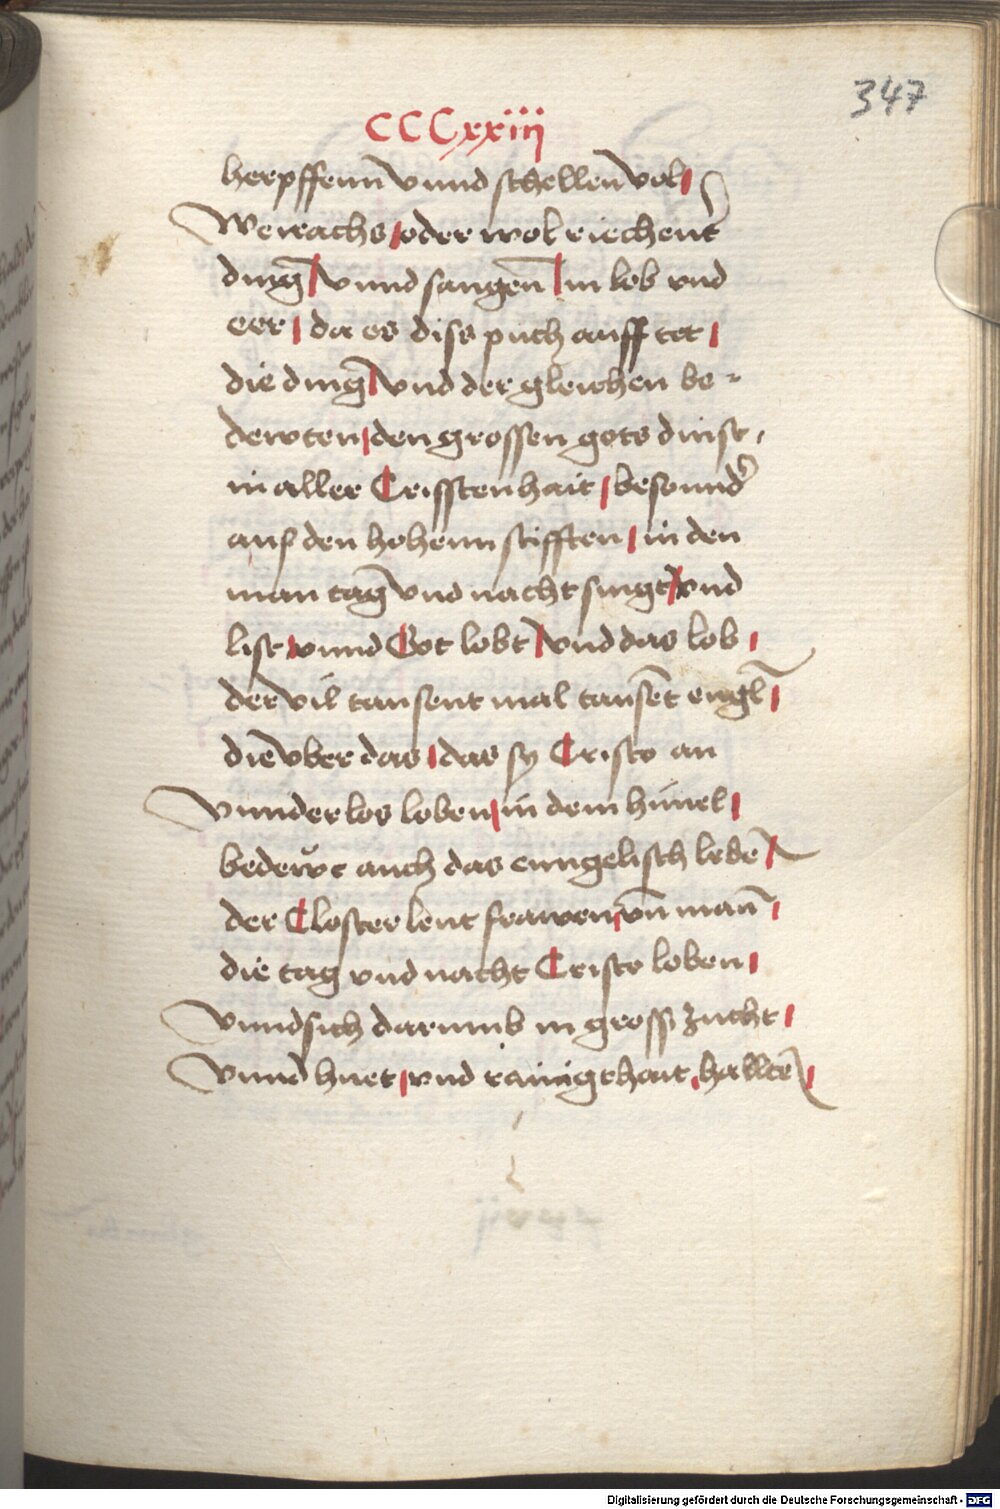 347
CCCxxiiij
herpffenn vnnd schellen vol
Weirachs oder wol riechent
ding vnnd sangen in lob vnd
eer da es diss puch auff tet
die ding vnd der gleichen be-
dewten den grossen gots dinst
in aller Crisstenhait besounder
auf den hohenn stifften in den
man tag vnd nacht singt vnd
list vnnd Got lobt vnd das lob
der vil tausent mal tausēt engl
die vber das das sy Cristo an
vnnderlos loben in dem himel
bedewt auch das enngelisch lebē
der Closter leut frawen vn̄ man̄
die tag vnd nacht Cristo loben
vnnd sich darumb in gross zucht
vnnd huet vnd rainigkhait halltē
Digitalisierung gefördert durch die Deutsche Forschungsgemeinschaft - DFG